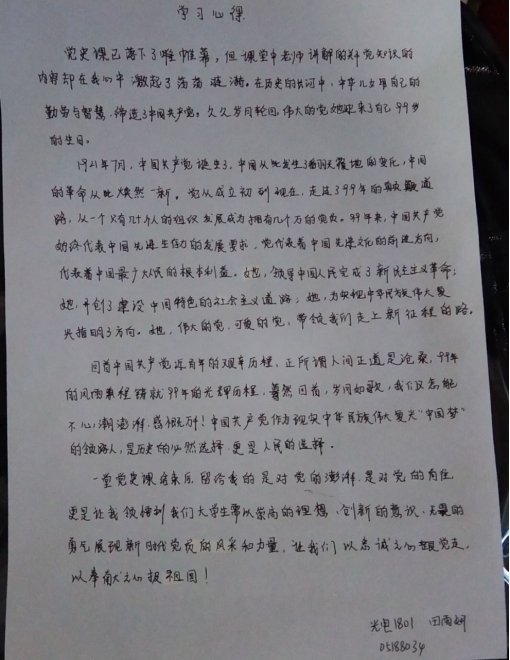 学习心得
党史课已落下了帷幕,但课堂中老师讲解的对党知识的
内容却在我们中激起了荡荡涟漪。在历史的长河中,中华儿女用自己的
勤劳与智慧,缔造了中国共产党,久久岁月轮回,伟大的党她迎来了自己99岁
的生日。
1921年7月,中国共产党诞生了,中国从此发生了翻天覆地的变化,中国
的革命从此焕然一新。党从成立初到现在,走过了99年的艰难道
路,从一个只有几十人的组织发展成为拥有几千万的党员。99年来,中国共产党
始终代表中国先进生产力的发展要求,党代表着中国先进文化的前进方向,
代表着中国最广大人民的根本利益。她,领导中国人民完成了新民主主义革命;
她,开创了建设中国特色的社会主义道路;她,为实现中华民族伟大复
兴指明了方向。她,伟大的党,可爱的党,带领我们走上新征程的路。
回首中国共产党近百年的艰辛历程,正所谓人间正道是沧桑,99年
的风雨兼程铸就99年的光辉历程,蓦然回首,岁月如歌,我们又怎能
不心潮澎湃,感慨万千!中国共产党作为实现中华民族伟大复兴“中国梦”
的领路人,是历史的必然选择,更是人民的选择。
一堂党史课结束后,留给我的是对党的澎湃,是对党的自信,
更是让我领悟到我们大学生需以崇高的理想、创新的意识、无畏的
勇气展现新时代党员的风采和力量,让我们以忠诚之心跟党走,
以奉献之心报祖国!
光电1801 田雨妍
05188034